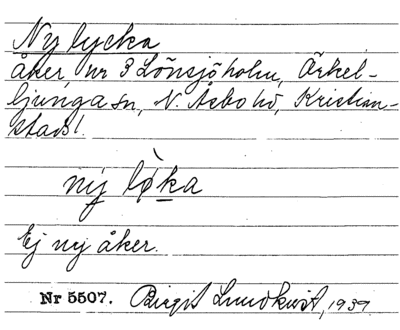 Ny lycka
åker, nr 3 Lönsjöholm, Örkel-
ljunga sn, N. Åsbo hd, Kristian-
stads l.
ny lø̀ka
Ej ny åker.
Nr 5507. Birgit Lundkvist, 1937.